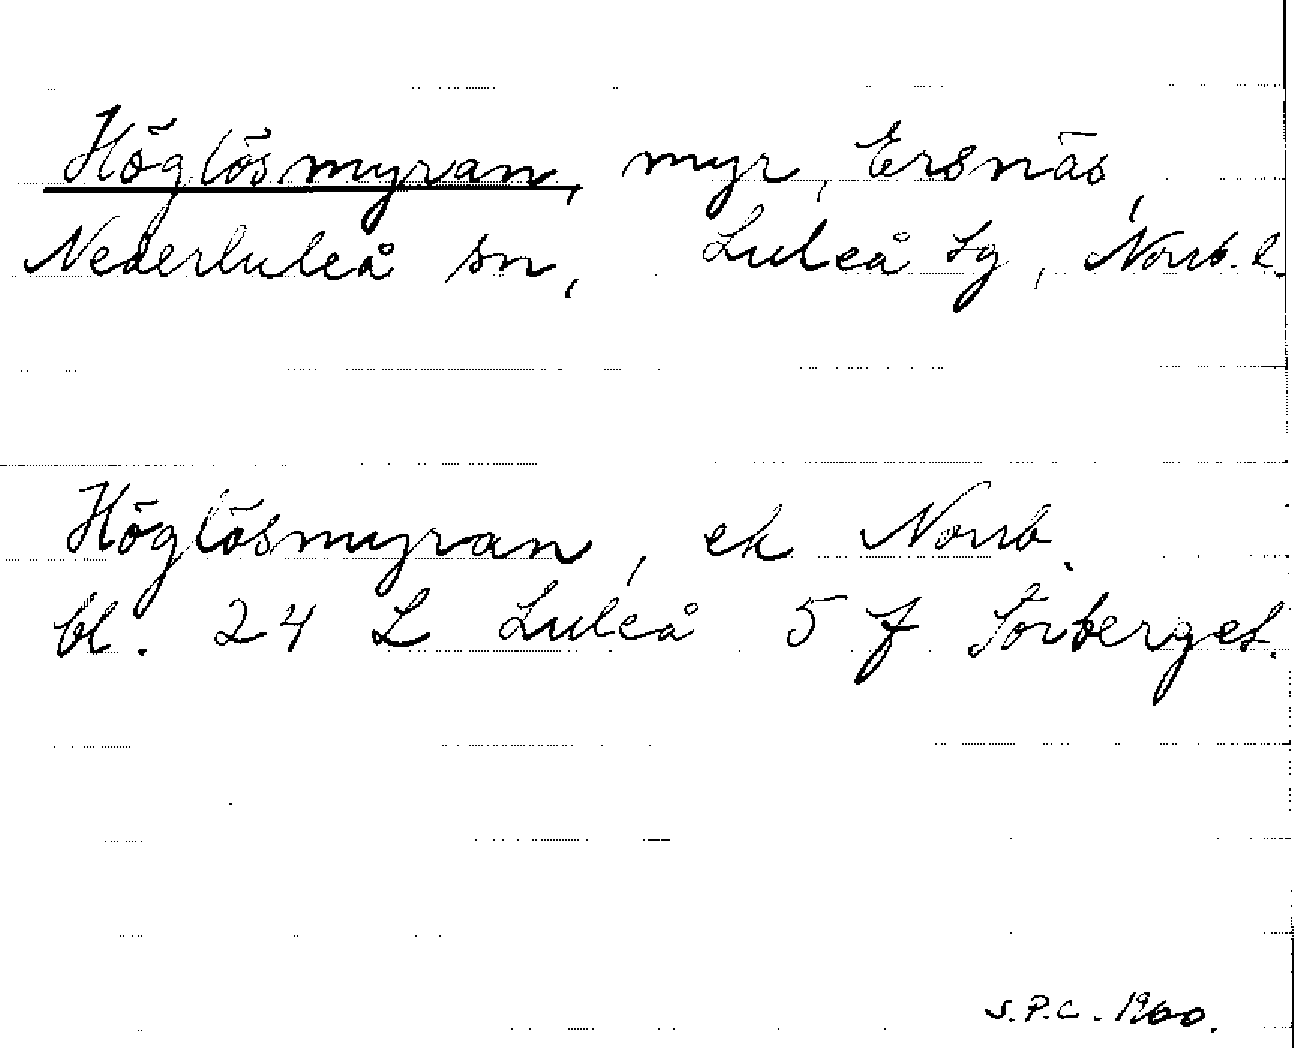 Höglösmyran, myr, Ersnäs,
Nederluleå sn, Luleå tg, Norrb. l.
Höglösmyran, ek Norrb
bl. 24 L Luleå 5 f Sörberget.
S.P.C. 1960.